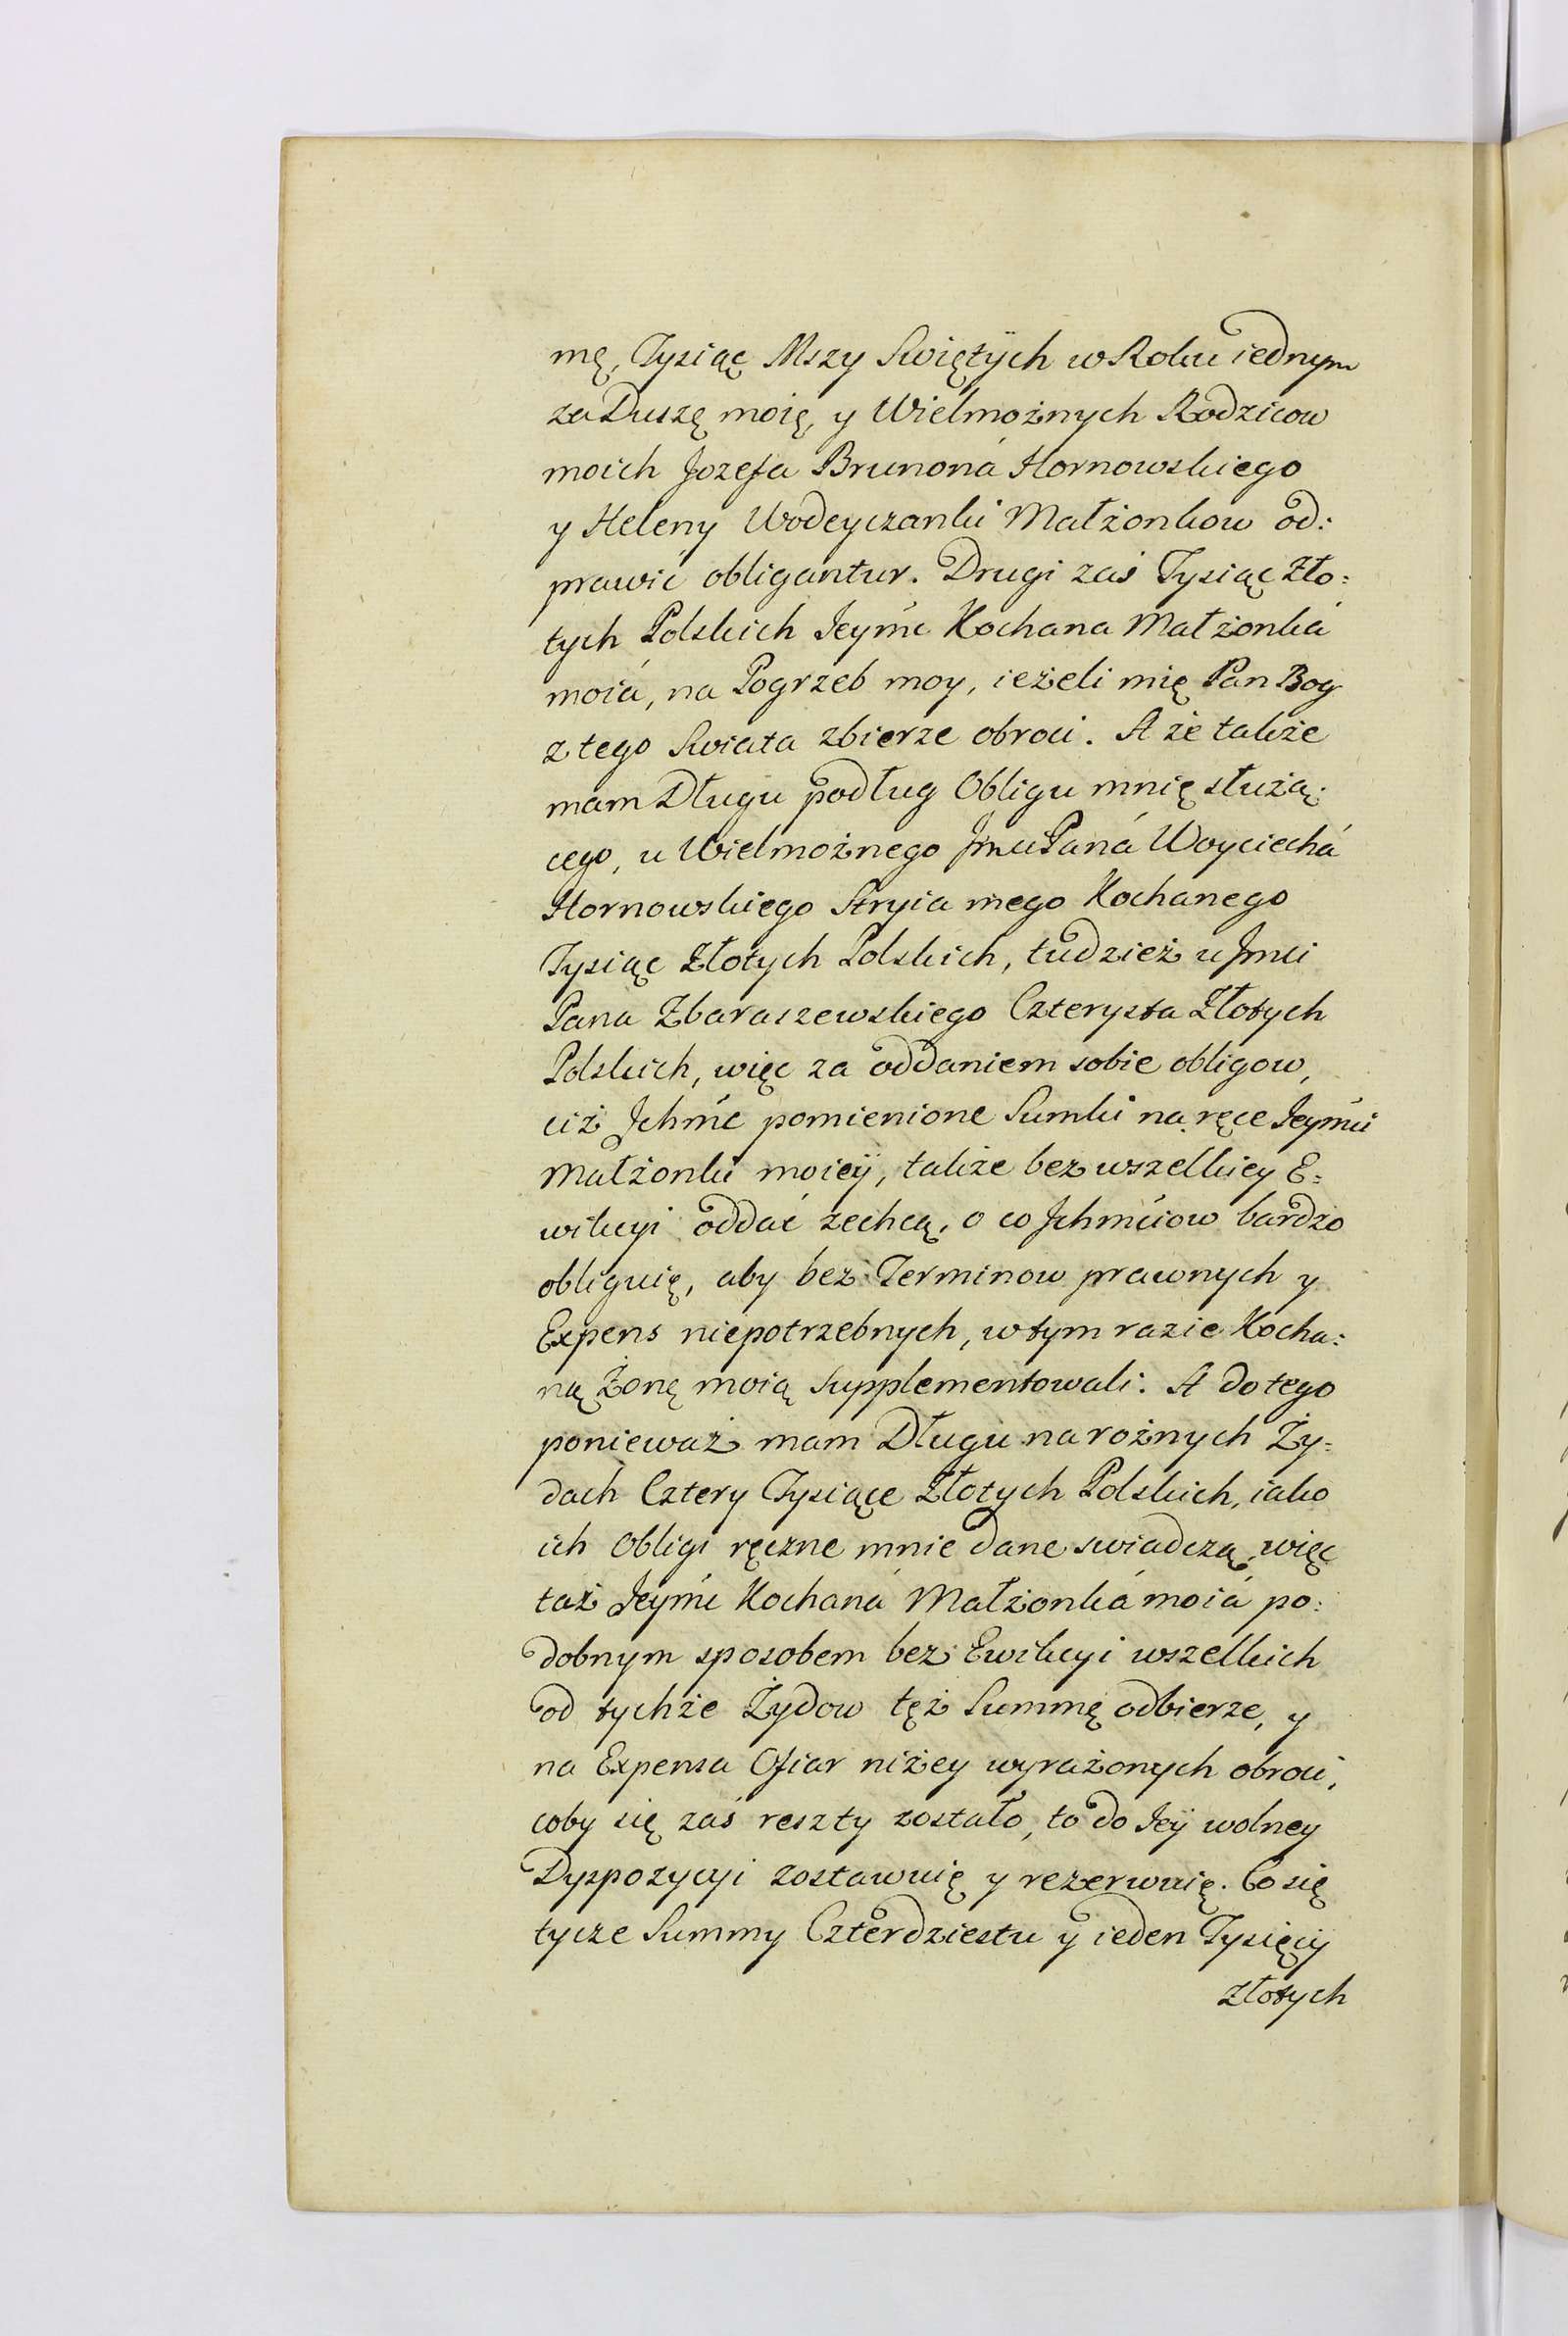 mę, Tysiąc Mszy Swiętych w Roku iednym
za Duszę moię, y Wielmożnych Rodzicow
moich Jozefa Brunoná Hornowskiego
y Heleny Wodeyczanki Małżonkow od:
prawić obligantur. Drugi zaś Tysiąc Zło:
tych Polskich Jeymć Kochana Małżonká
moiá, na Pogrzeb moy, ieżeli mię Pan Bog
z tego Swiata zbierze obroci. A że także
mam Długu podług Obligu mnię służą:
cego, u Wielmożnego Jmci Paná Woyciechá
Hornowskiego Stryia mego Kochanego
Tysiąc Złotych Polskich, tudzież u Jmci
Pana Zbaraszewskiego Czterysta Złotych
Polskich, więc za oddaniem sobie obligow,
ciż Jchmć pomienione Sumki na ręce Jeymci
Małżonki moiey, także bez wszelkiey E:
wikcyi oddać zechcą, o co Jchmciow bardzo
obliguię, aby bez Terminow prawnych y
Expens niepotrzebnych, w tym razie Kocha:
ną Żonę moią supplementowali. A do tego
ponieważ mam Długu na rożnych Ży:
dach Cztery Tysiące Złotych Polskich, iako
ich Obligi ręczne mnie dane swiadczą, więc
taż Jeymć Kochaná Małżonká moiá po:
dobnym sposobem bez Ewikcyi wszelkich
od tychże Żydow tęż Summę odbierze, y
na Expensa Ofiar niżey wyrażonych obroci,
coby się zaś reszty zostało, to do Jey wolney
Dyspozycyi zostawuię y rezerwuię. Co się
tycze Summy Czterdziestu y ieden Tysięcy
złotych